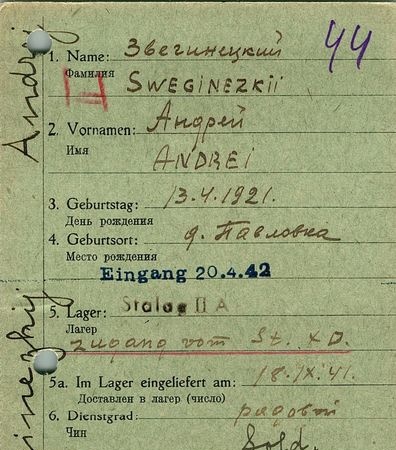 44
Andrej
1. Name: Звегинецкий
Фамилия
SWEGINEZKII
2. Vornamen: Андрей
Имя
ANDREI
3. Geburtstag: 13.4.1921.
День рождения
4. Geburtsort: д. Павловка
Место рождения
Eingang 20.4.42
5. Lager: Stalag II A
Лагер
zugang vom St. X D.
5a. Im Lager eingeliefert am: 18.IX.41.
Доставлен в лагер (число)
6. Dienstgrad: рядовой
Чин
Sold.